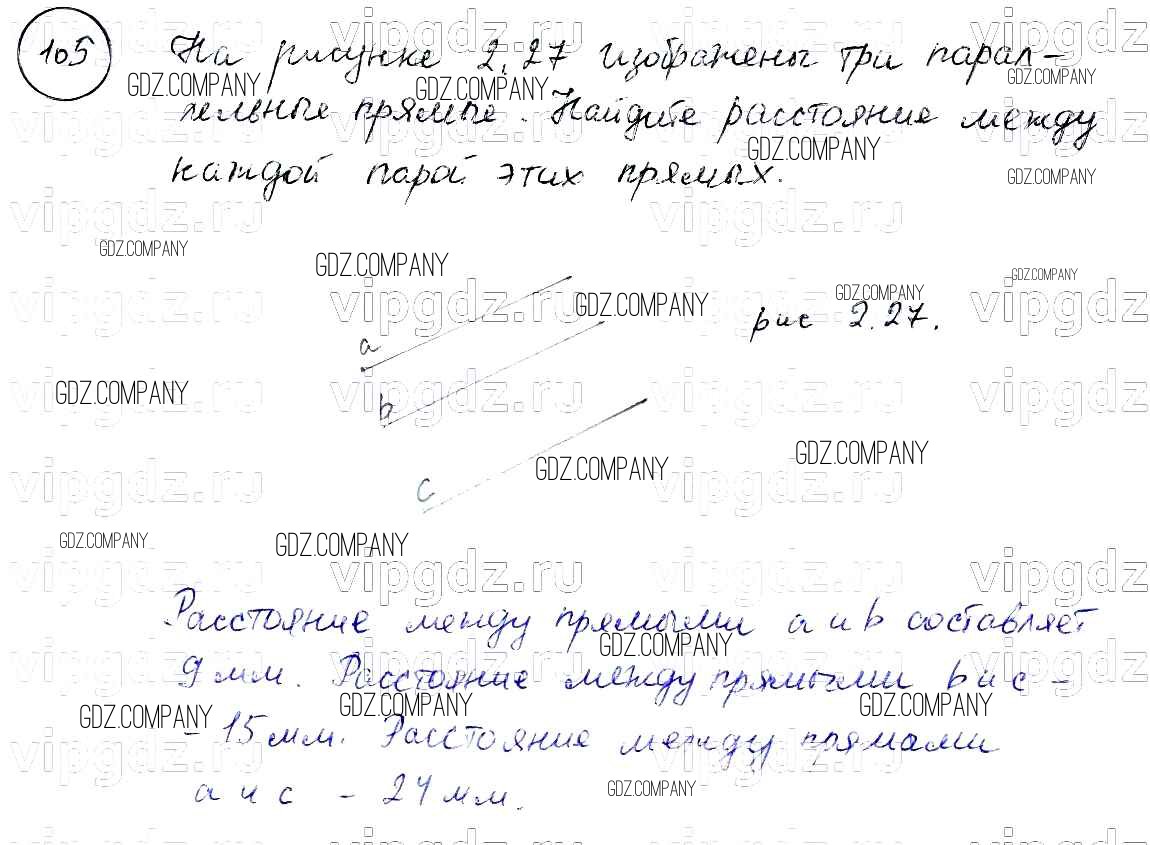 105 На рисунке 2.27 изображены три парал-
лельные прямые. Найдите расстояние между
каждой парой этих прямых.
a
рис 2.27.
b
c
Расстояние между прямыми a и b составляет
9 мм. Расстояние между прямыми b и c -
- 15 мм. Расстояние между прямами
a и c - 24 мм.
vipgdz.ru
GDZ.COMPANY